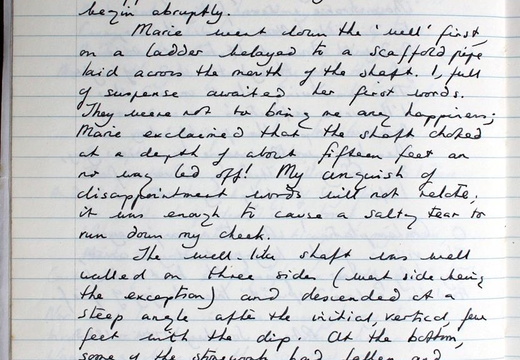 begin abruptly.
Marie went down the 'well' first,
on a ladder belayed to a scaffold pipe
laid across the mouth of the shaft. I, full
of suspense awaited her first words.
They were not to bring me any happiness;
Marie exclaimed that the shaft choked
at a depth of about fifteen feet an
no way led off! My anguish of
disappointment words will not relate;
it was enough to cause a salty tear to
run down my cheek.
The well-like shaft was well
walled on three sides (west side being
the exception) and descended at a
steep angle after the initial, vertical, few
feet with the dip. At the bottom,
some of the stonework had fallen and